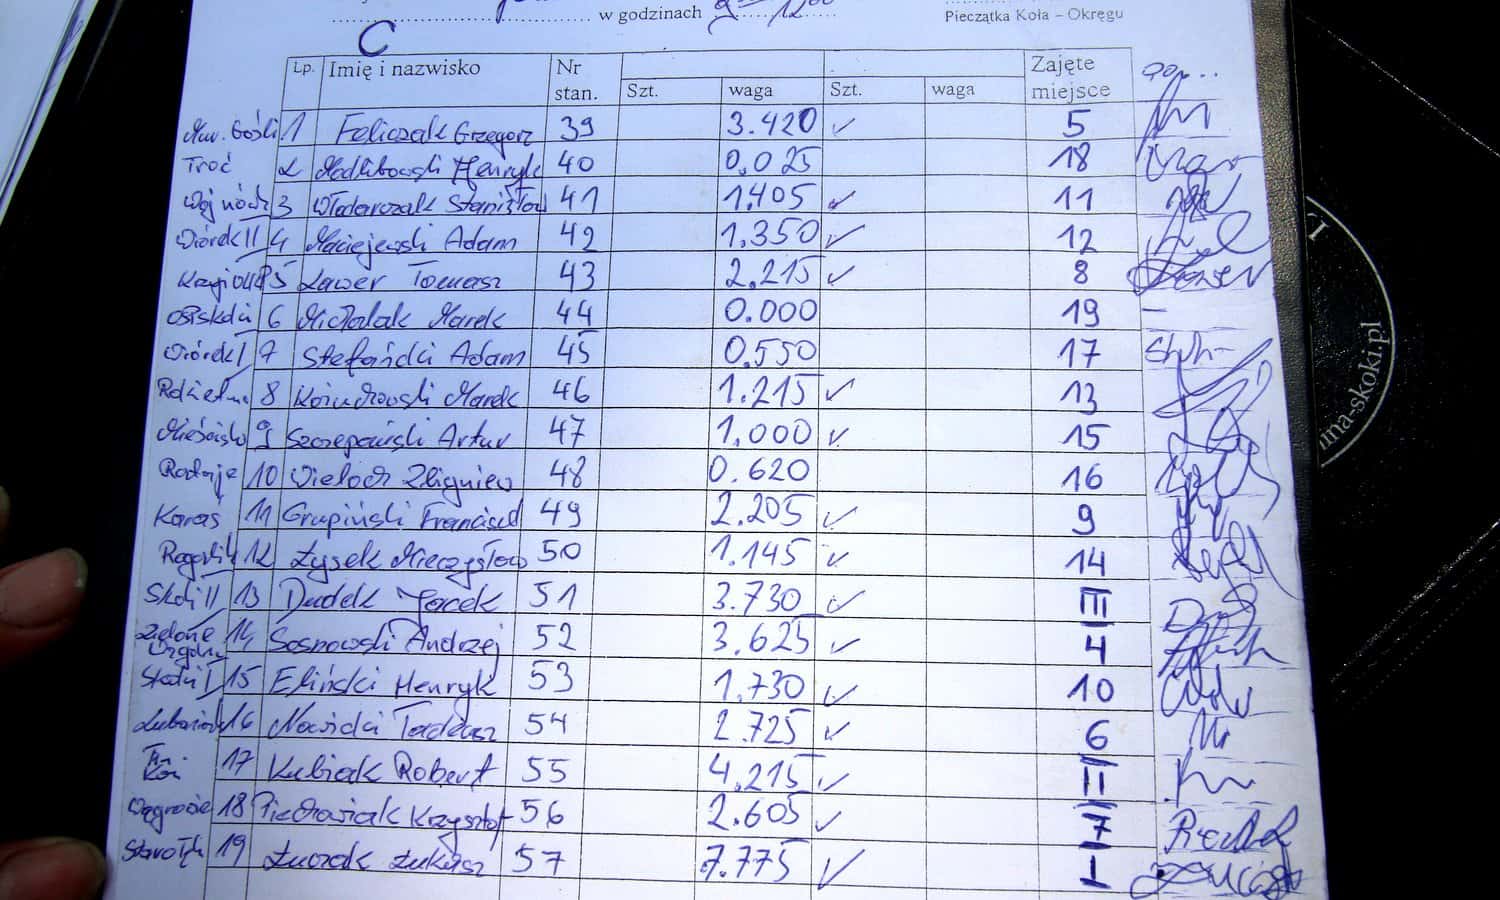 w godzinach 9 12.00
Pieczątka Koła – Okręgu
C
Lp. Imię i nazwisko Nr stan. Szt. waga Szt. waga Zajęte miejsce
1 Feliczak Grzegorz 39 3.420 ✓ 5
Troć 2 Modlibowski Henryk 40 0.025 18
3 Włodarczak Stanisław 41 1.405 ✓ 11
Wiórek II 4 Maciejewski Adam 42 1.350 ✓ 12
5 Ławer Tomasz 43 2.215 ✓ 8
6 Michalak Marek 44 0.000 19 –
Wiórek I 7 Stefański Adam 45 0.550 17
8 Marek 46 1.215 ✓ 13
Mieścisko 9 Szczepański Artur 47 1.000 ✓ 15
10 Wieloch Zbigniew 48 0.620 16
Karas 11 Grupiński Franciszek 49 2.205 ✓ 9
12 Łysek Mieczysław 50 1.145 ✓ 14
Skoki II 13 Dudek Jacek 51 3.730 ✓ III
Zielone 14 Sosnowski Andrzej 52 3.625 ✓ 4
Skoki I 15 Eliński Henryk 53 1.730 ✓ 10
16 Nowicki Tadeusz 54 2.725 ✓ 6
17 Kubiak Robert 55 4.215 ✓ II
18 Piechowiak Krzysztof 56 2.605 ✓ 7
19 Łuczak Łukasz 57 7.775 ✓ I
na-skoki.pl